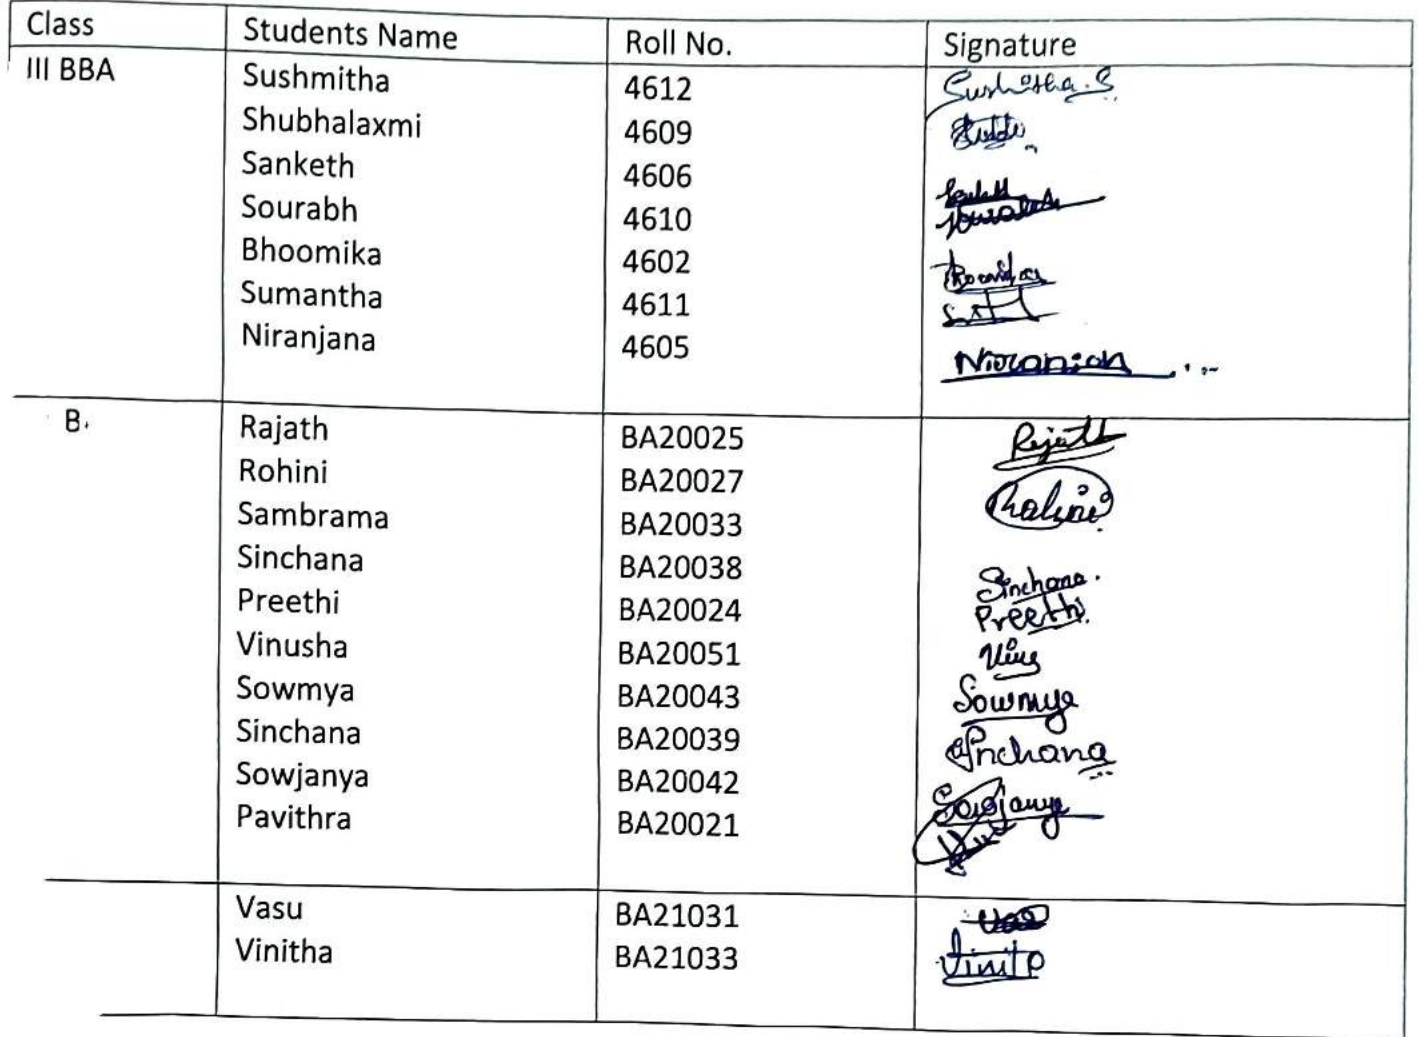 Class Students Name Roll No. Signature
III BBA Sushmitha 4612 Sushmitha.S
Shubhalaxmi 4609
Sanketh 4606
Sourabh 4610
Bhoomika 4602 Bhoomika
Sumantha 4611
Niranjana 4605 Niranjan
B. Rajath BA20025 Rajath
Rohini BA20027 Rohini
Sambrama BA20033
Sinchana BA20038 Sinchana.
Preethi BA20024 Preethi.
Vinusha BA20051
Sowmya BA20043 Sowmya
Sinchana BA20039 Sinchana
Sowjanya BA20042 Sowjanya
Pavithra BA20021
Vasu BA21031
Vinitha BA21033